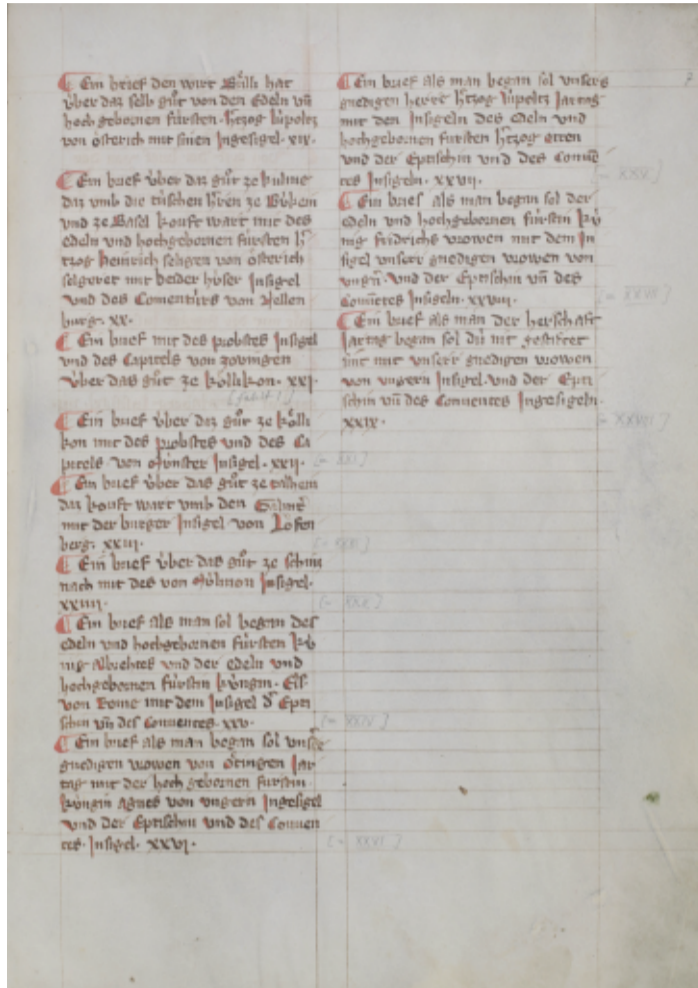 Ein brief den wirt Wͤlli hat
vͤber daz selb gůt von den Edeln vn̄
hoch gebornen fúrsten. Hͤtzog Lúpoltz
von ósterich mit sinen Ingesigel. xix.
Ein brief vͤber daz gůt ze kulme
daz vmb die túschen hͤren ze Búkein
vnd ze Basel kouft wart mit des
edeln vnd hochgebornen fúrsten hͤ
tzog heinrich seligen von ósterich
selgeret mit beider húser Insigel
vnd des Comentúrs von Mellen
burg. xx.
Ein brief mit des probstes Insigel
vnd des Capitels von zovingen
vͤber das gůt ze kóllikon. xxi.
Ein brief vͤber daz gůt ze kólli
kon mit des probstes vnd des Ca
pitels von Múnster Insigel. xxii.
Ein brief vͤber das gůt ze talhein
daz kouft wart vmb den
mit der burger Insigel von Lófen
berg. xxiii.
Ein brief vͤber das gůt ze schinz
nach mit des von Múlinon Insigel.
xxiiii.
Ein brief als man sol began des
edeln vnd hochgebornen fúrsten kú
nig Albrehtes vnd der edeln vnd
hochgebornen fúrstin kúngin. Els
von Rome mit dem Insigel dͤ Epti
schin vn̄ des Conuentes. xxv.
Ein brief als man began sol vnsͤ
gnedigen vrowen von Ótingen Jar
tag mit der hoch gebornen fúrstin
kúngin agnes von vngern Ingesigel
vnd der Eptischin vnd des Conuen
tes. Insigel. xxvi.
7
Ein brief als man began sol vnsers
gnedigen herre hͤtzog lúpoltz Jartag
mit den Insigeln des Edeln vnd
hochgebornen fúrsten hͤtzog otten
vnd der Eptischin vnd des Conuē
tes Insigeln. xxvii.
Ein brief als man began sol der
Edeln vnd hochgebornen fúrstin kú
nig fridrichs vrowen mit dem In
sigel vnserr gnedigen vrowen von
vngn̄. vnd der Eptischin vn̄ des
Conuētes Insigeln. xxviii.
Ein brief als man der herschaft
Jartag began sol dú nit gestiftet
sint mit vnserr gnedigen vrowen
von vngern Insigel. vnd der Epti
schin vn̄ des Conuentes Ingesigeln.
xxix.